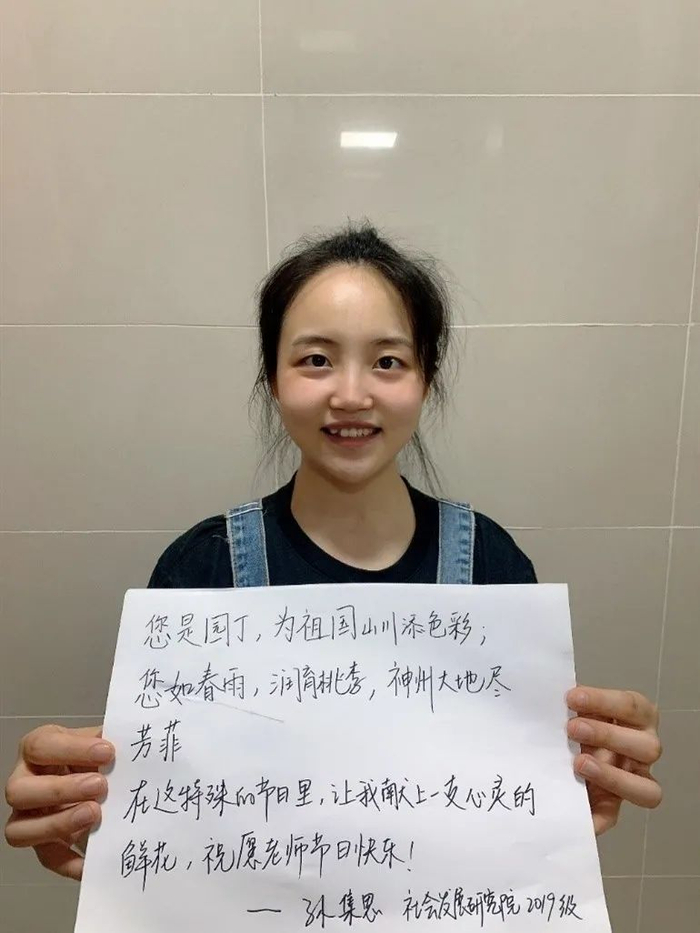 您是园丁，为祖国山川添色彩；
您如春雨，润育桃李，神州大地尽
芳菲
在这特殊的节日里，让我献上一支心灵的
鲜花，祝愿老师节日快乐！
— 孙集思 社会发展研究院2019级